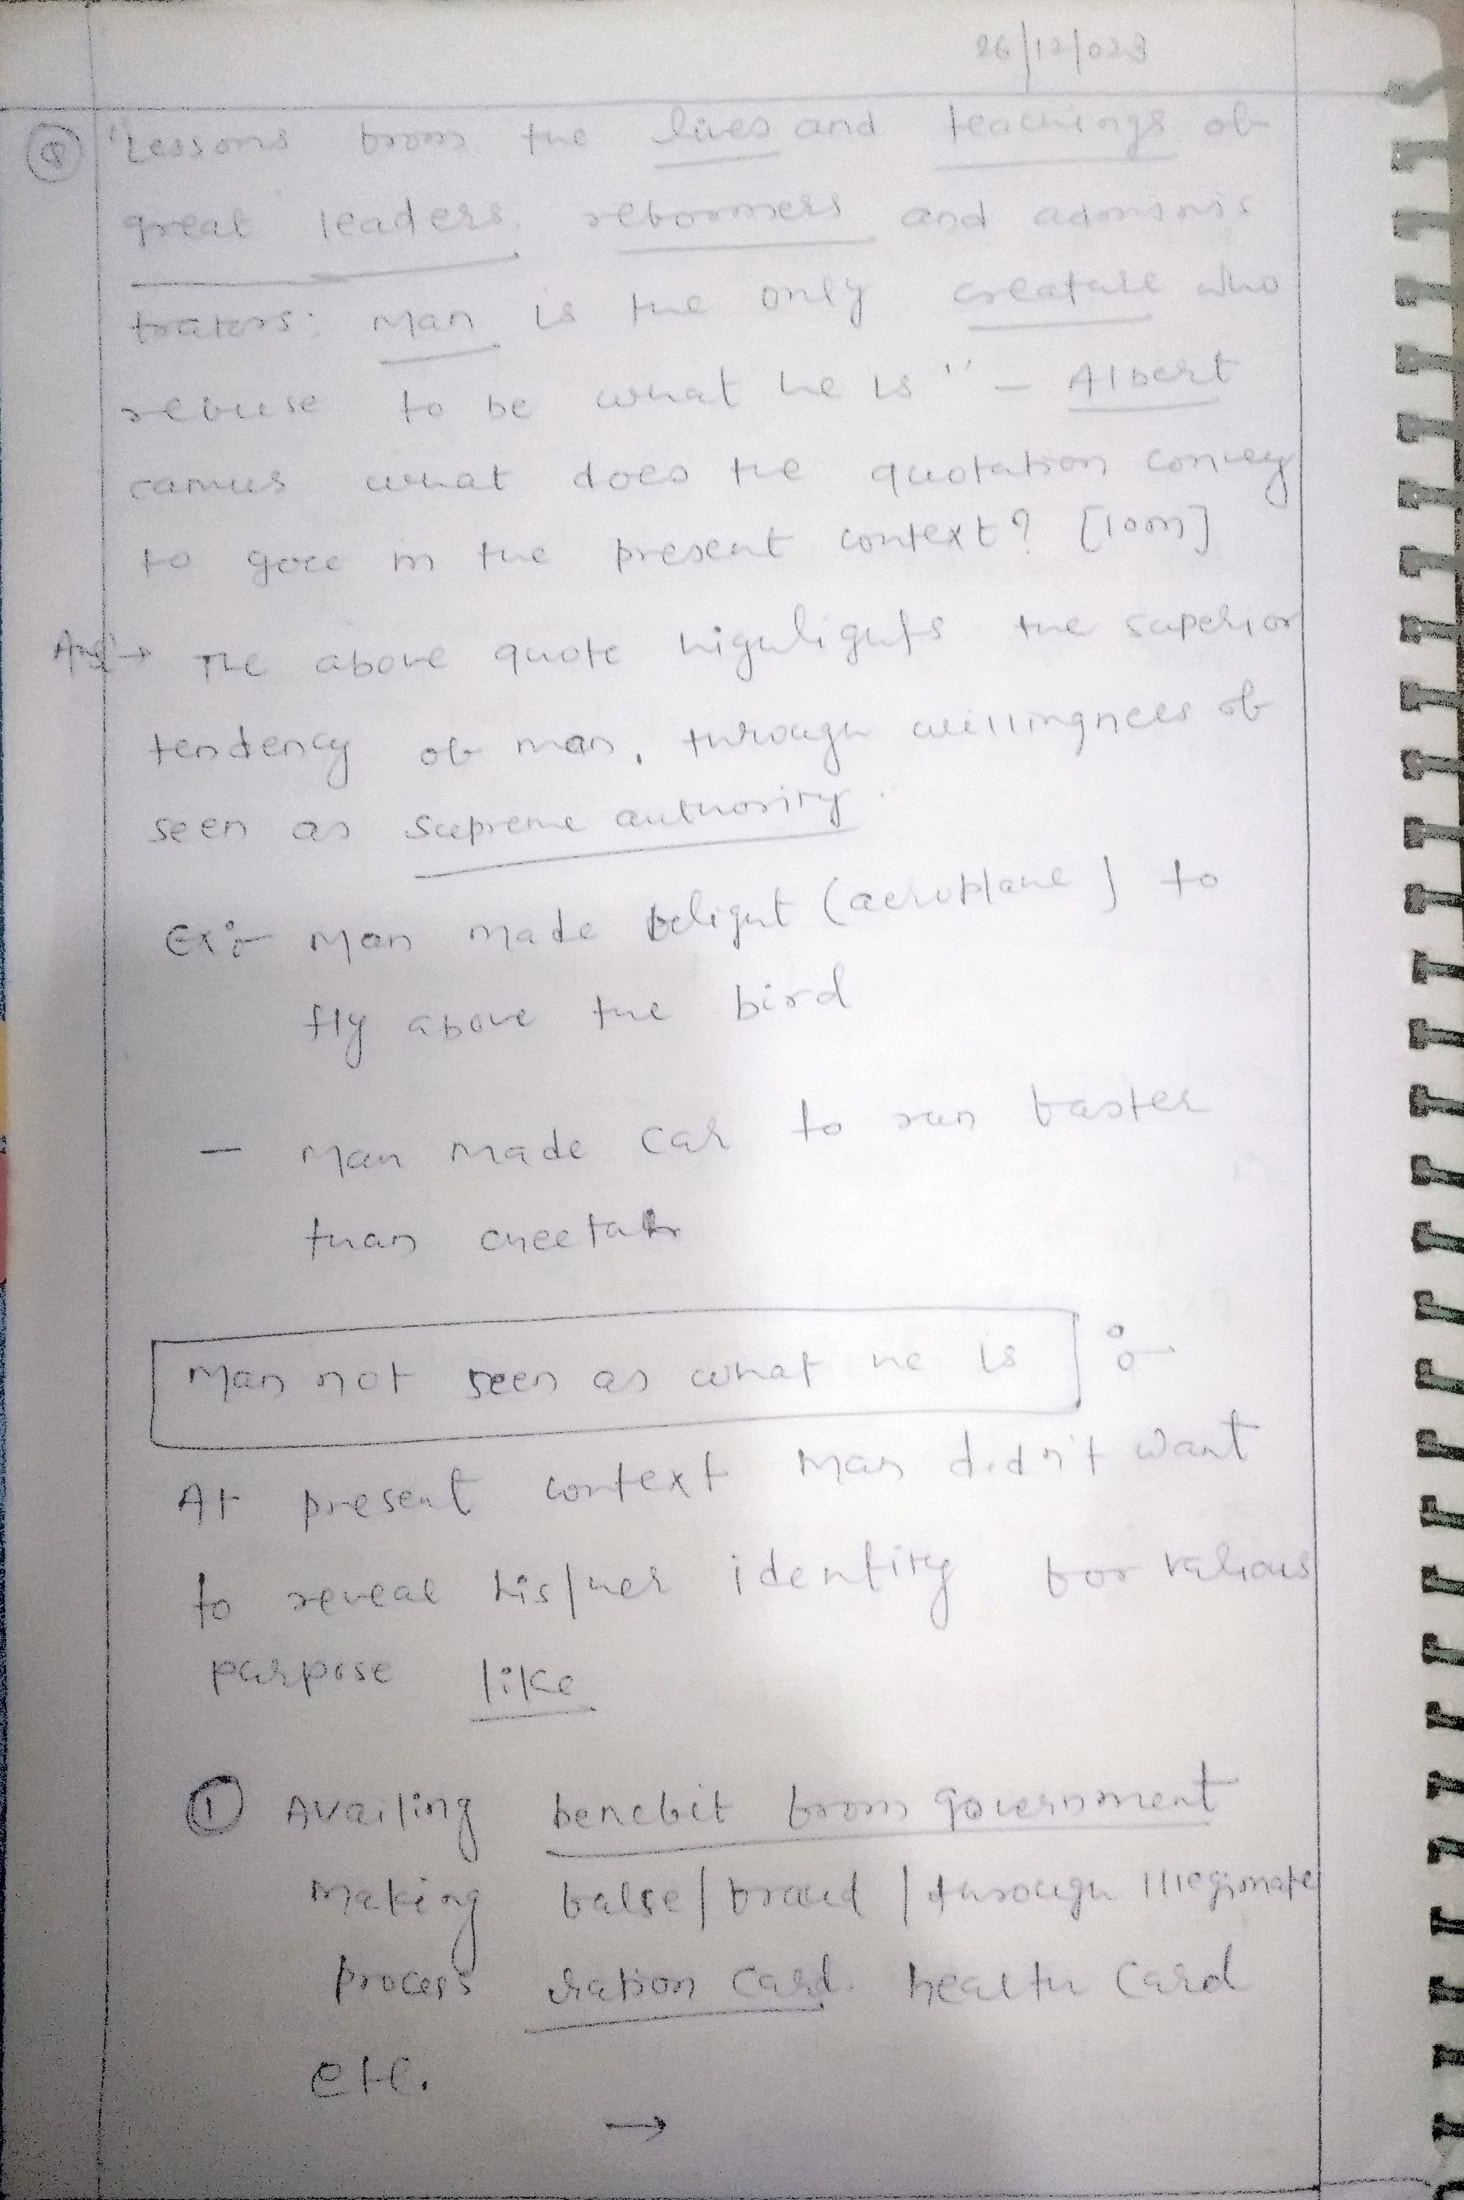 26/12/023
Q "Lessons from the lives and teachings of
great leaders, reformers and adminis
trators; Man is the only creature who
refuse to be what he is" - Albert
camus what does the quotation convey
to you in the present context? [10m]
Ans → The above quote highlights the superior
tendency of man, through willingness of
seen as supreme authority.
Ex:- Man made flight (aeroplane) to
fly above the bird
- Man made car to run faster
than cheetah
Man not seen as what he is :-
At present context man didn't want
to reveal his/her identity for various
purpose like
① Availing benefit from government
making false/fraud/through illegimate
process ration card. health card
etc.
→